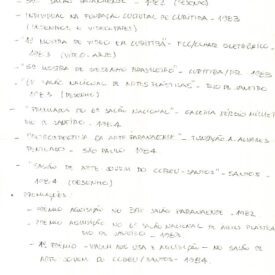 - 39º SALÃO PARANAENSE - 1982 (DESENHO)
- INDIVIDUAL NA FUNDAÇÃO CULTURAL DE CURITIBA - 1983
(DESENHOS E VIDEOTAPES)
- "1ª MOSTRA DE VIDEO EM CURITIBA" -
1983 (VIDEO-ARTE)
- MOSTRA DO DESENHO BRASILEIRO" - CURITIBA/PR. 1983
- "6º SALÃO NACIONAL DE ARTES PLÁSTICAS" - RIO DE JANEIRO
1983 (DESENHO)
- "PREMIADOS DO 6º SALÃO NACIONAL" - GALERIA SÉRGIO MILLIET
RIO DE JANEIRO - 1984
- DA ARTE PARANAENSE" - FUNDAÇÃO A. ALVARES
PENTEADO - SÃO PAULO 1984
- "SALÃO DE ARTE JOVEM DO CCBEU-SANTOS" - SANTOS -
1984 (DESENHO)
• PREMIAÇÕES:
- PRÊMIO AQUISIÇÃO NO 39º SALÃO PARANAENSE - 1982
- PRÊMIO AQUISIÇÃO NO 6º SALÃO NACIONAL DE ARTES PLÁSTICAS
RIO DE JANEIRO - 1983
- 1º PRÊMIO - VIAGEM AOS USA E AQUISIÇÃO - NO SALÃO DE
ARTE JOVEM DO CCBEU/SANTOS - 1984